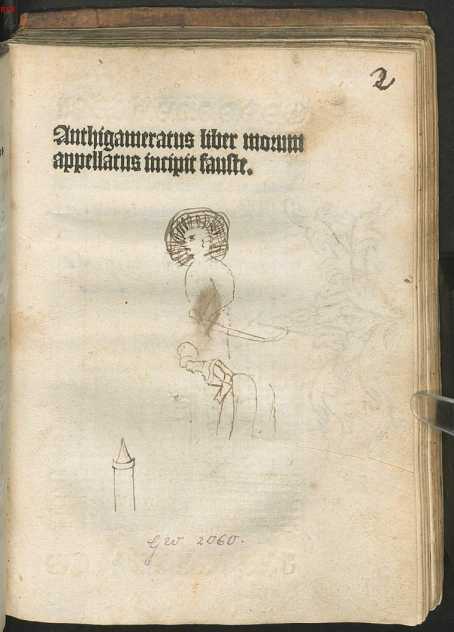 2
Anthigameratus liber morum
appellatus incipit fauste.
GW 2060.